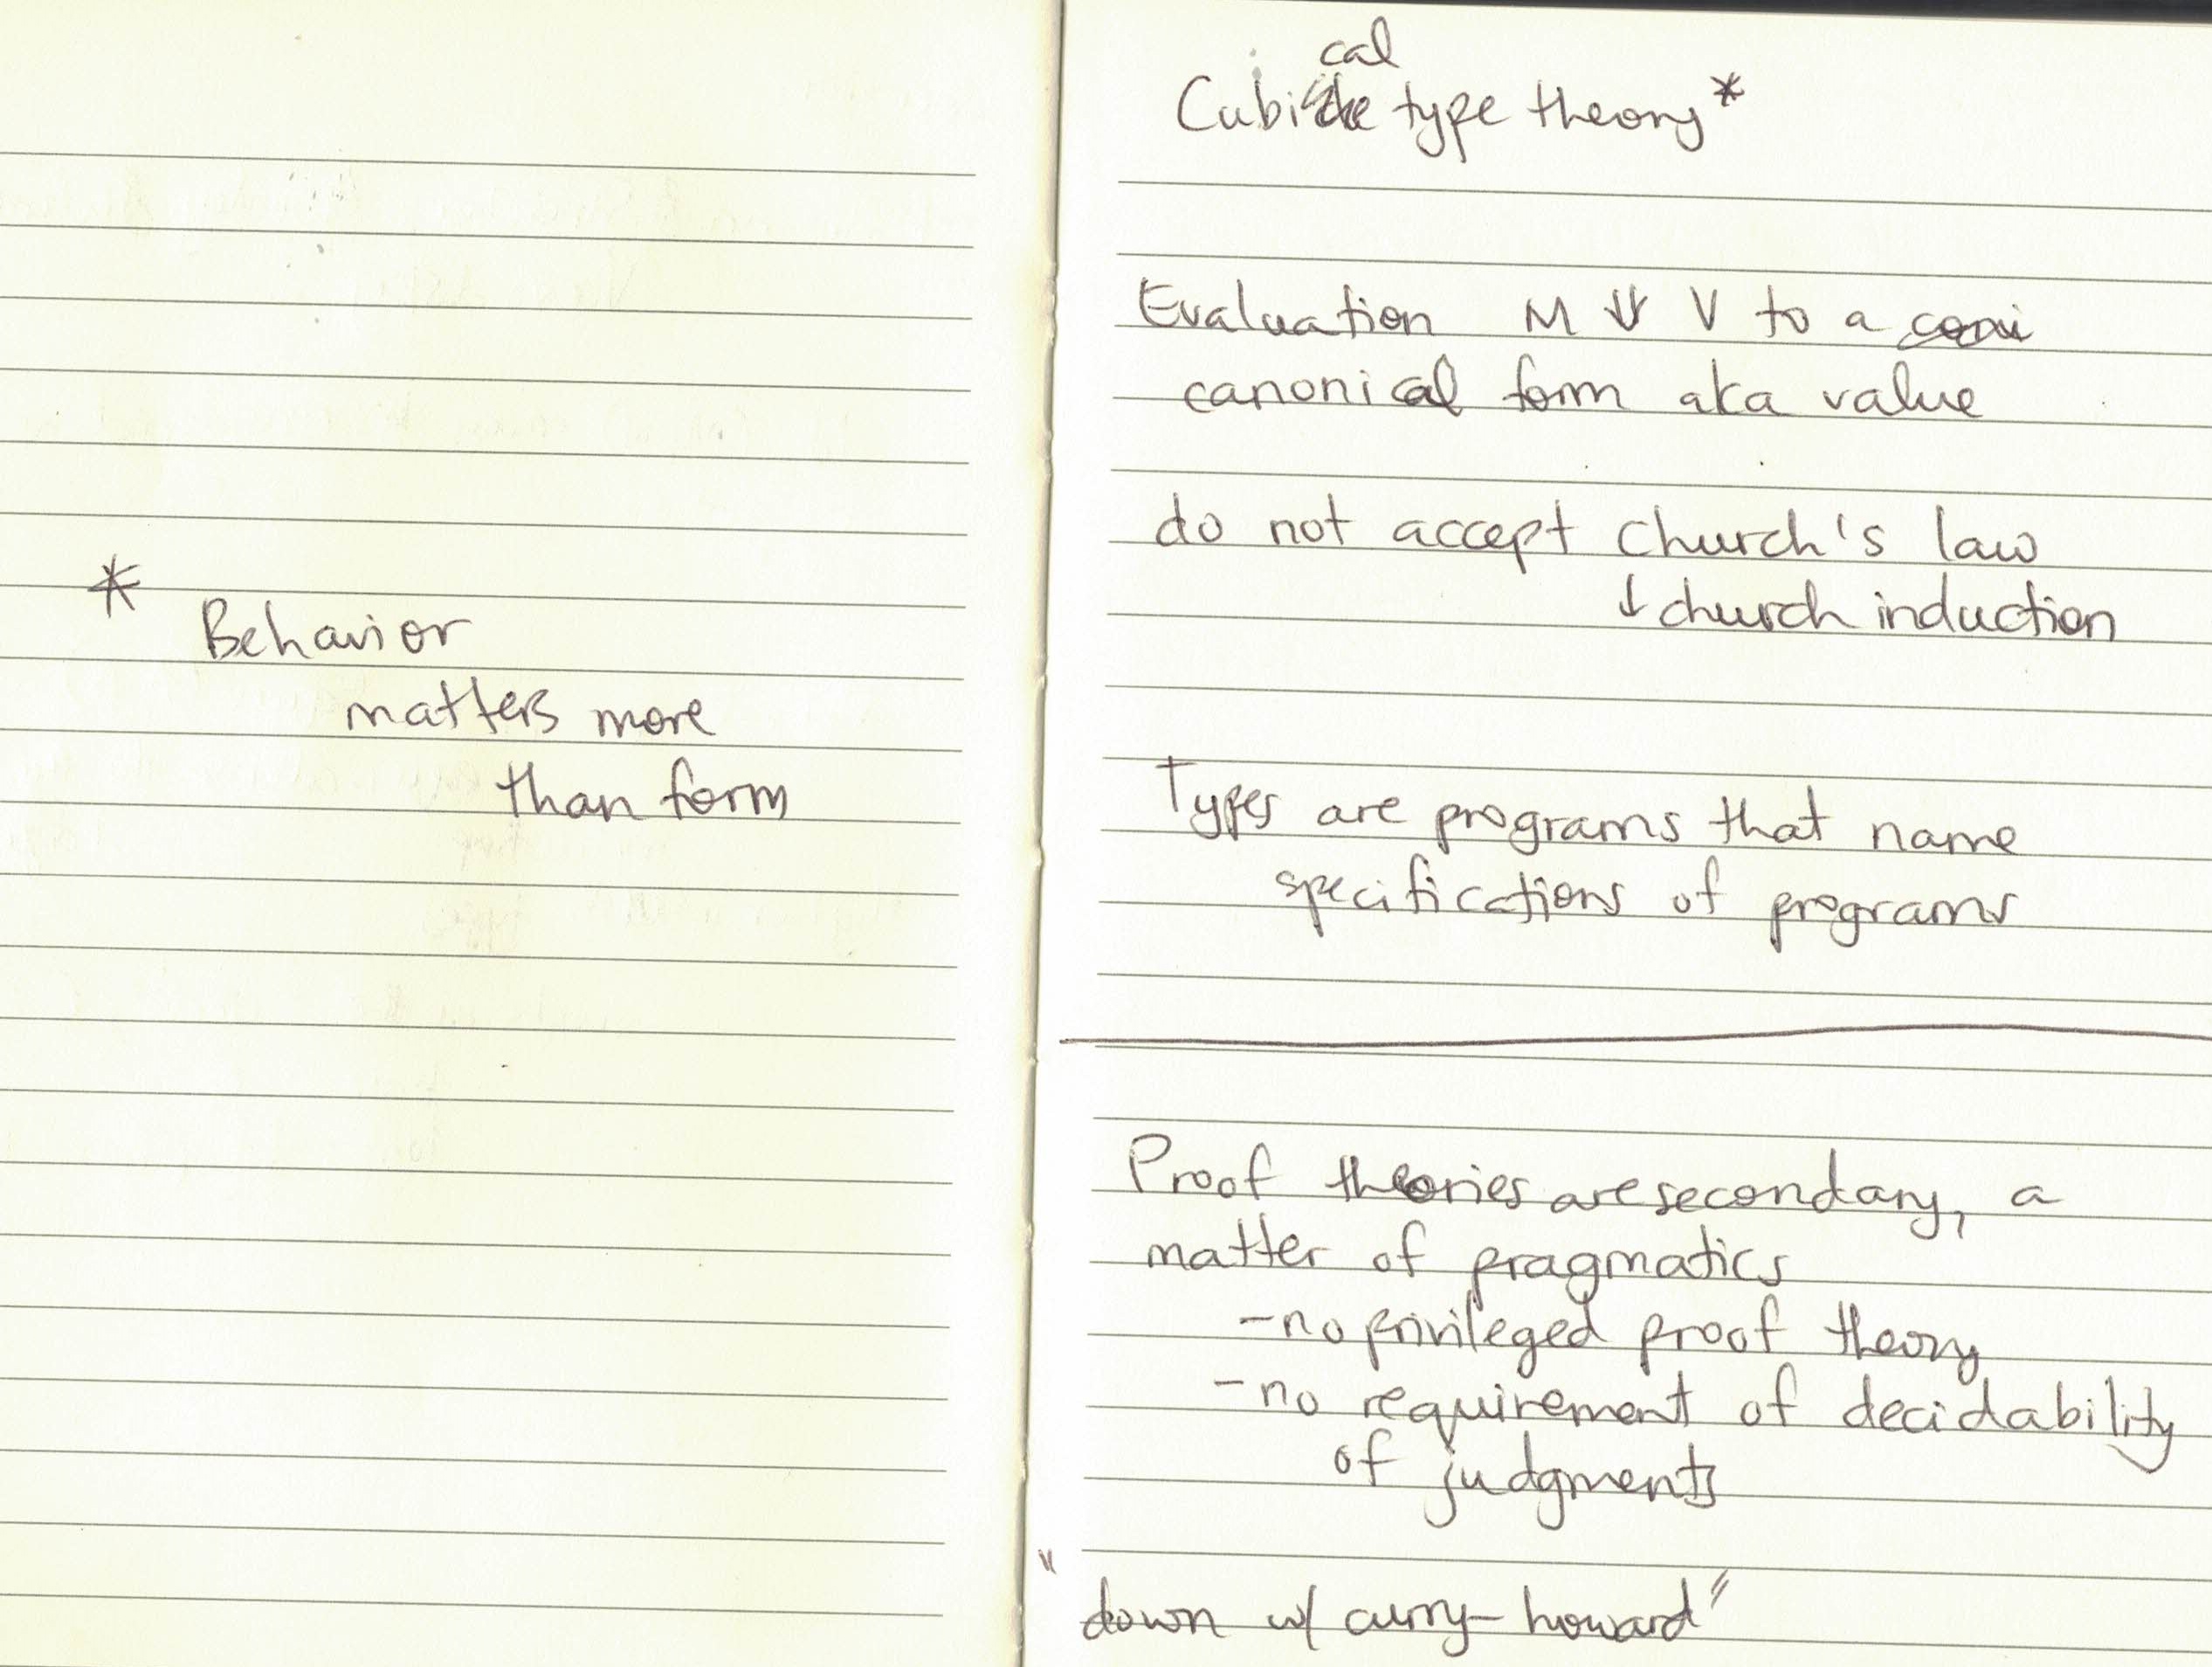 *
Behavior
matters more
than form
cal
Cubi type theory*
Evaluation M ⇓ V to a
canonical form aka value
do not accept Church's law
↓ church induction
Types are programs that name
specifications of programs
Proof theories are secondary, a
matter of pragmatics
- no privileged proof theory
- no requirement of decidability
of judgments
"down w/ curry-howard"